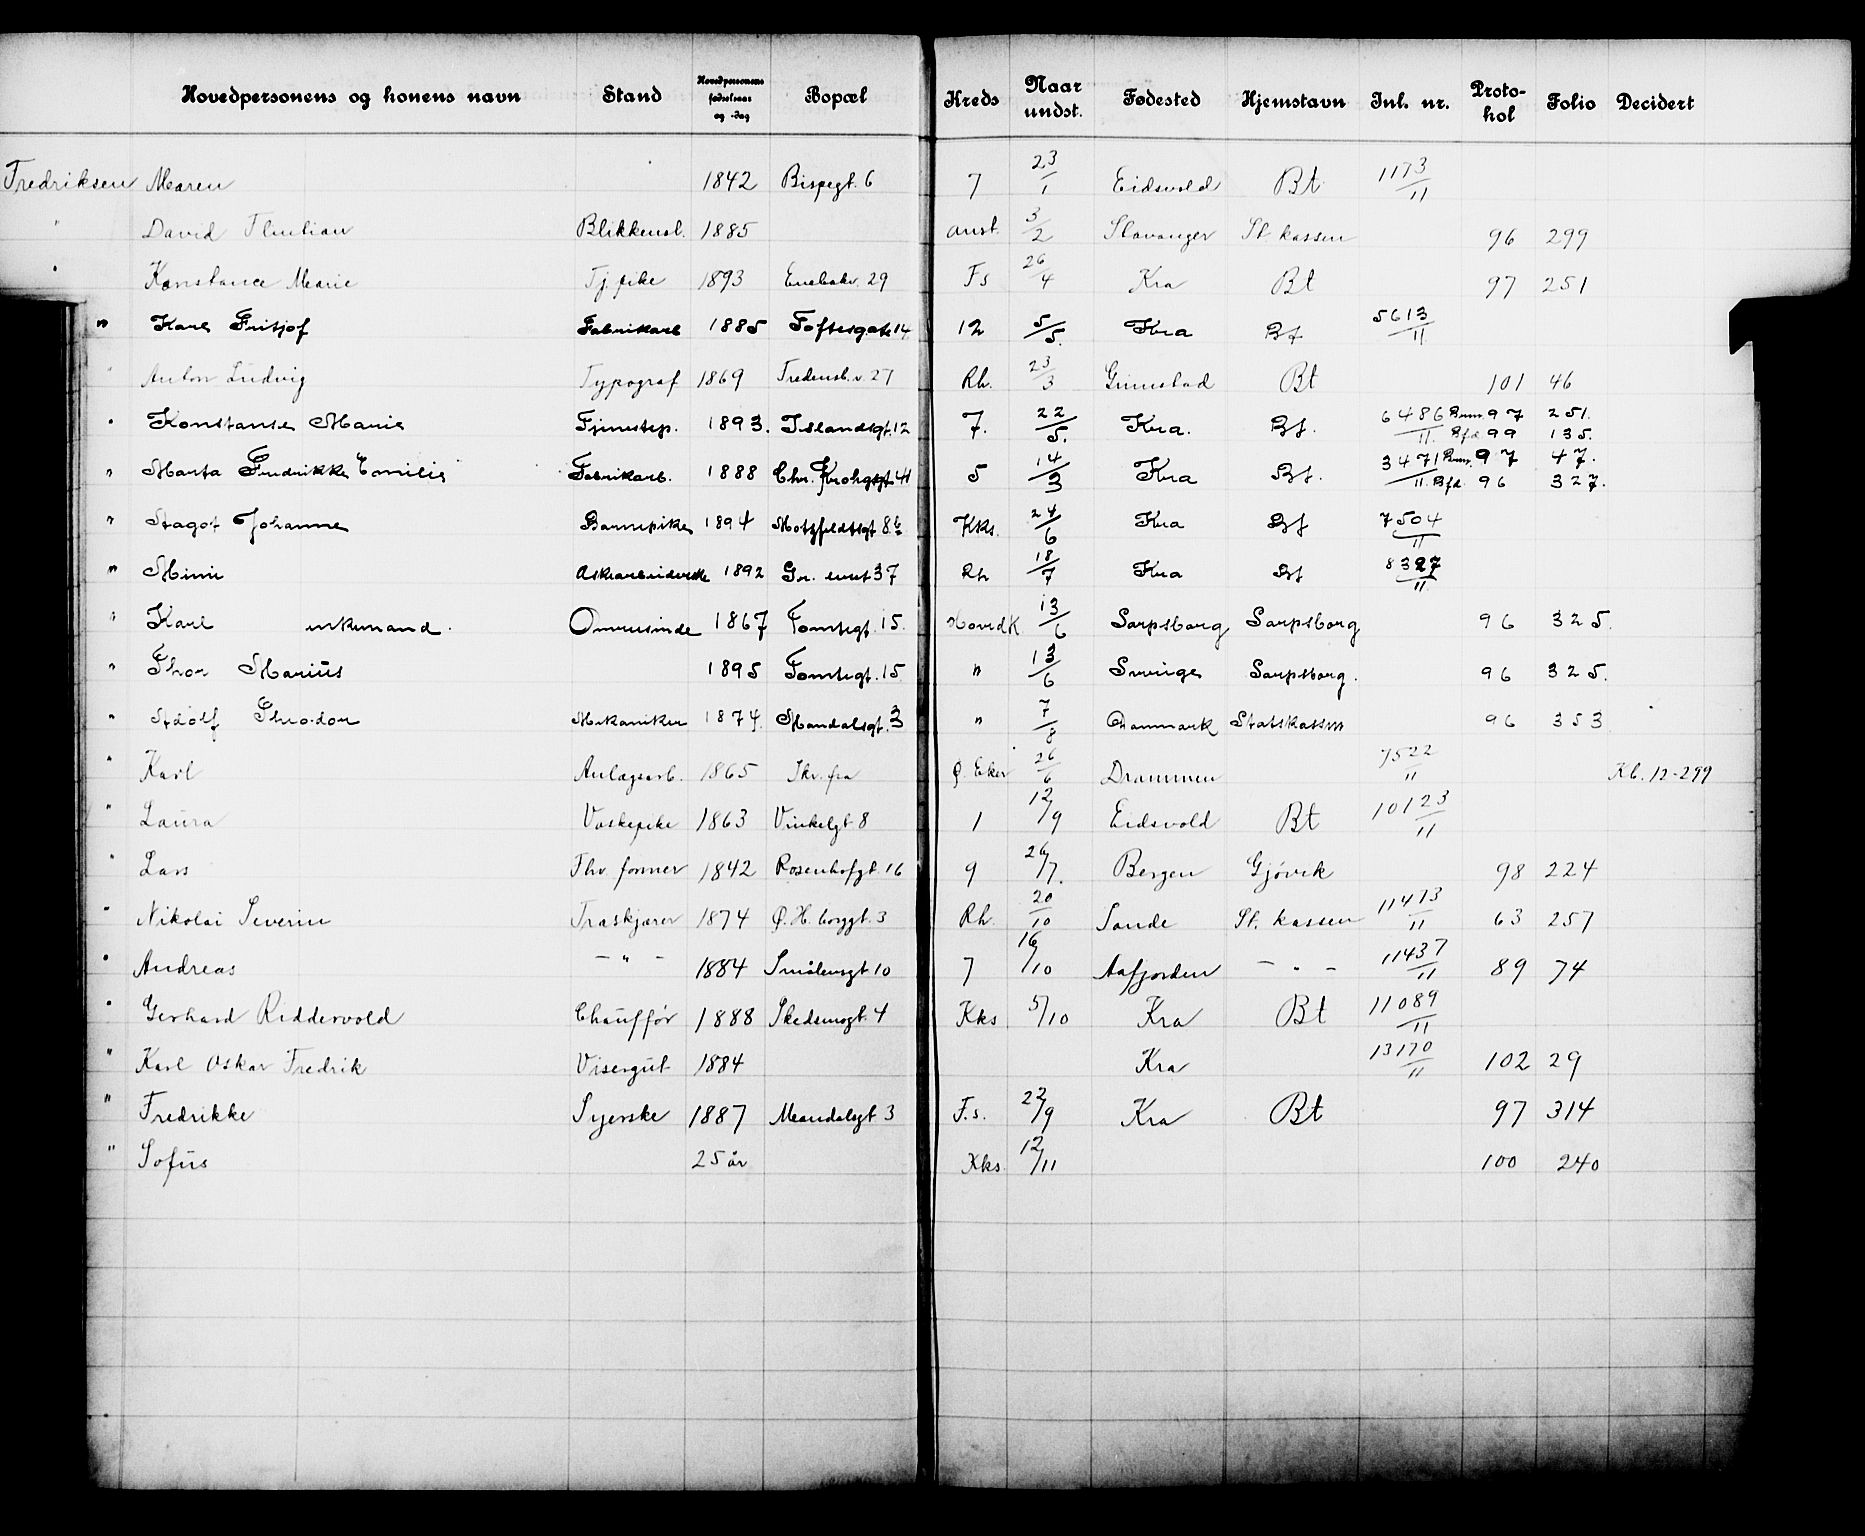 Hovedpersonens og konens navn Stand Hovedpersonens fødselsaar og -dag Bopæl Kreds Naar undst. Fødested Hjemstavn Inl. nr. Proto-kol Folio Decidert
Fredriksen Maren 1842 Bispegt. 6 7 23/1 Eidsvold Bt 1173/11
" David Blikkensl. 1885 anst. 3/2 Stavanger St. kassen 96 299
" Konstance Marie Tj. pike 1893 Enebakv. 29 Fs 26/4 Kra Bt 97 251
" Karl Fritjof Fabrikarb 1885 Toftesgate 14 12 5/5. Kra Bt 5613/11
" Anton Ludvig Typograf 1869 Fredensb.v. 27 Rh. 23/3 Grimstad Bt 101 46
" Konstanse Marie Tjenestep. 1893. Islandsgt. 12 7. 22/5. Kra. Bt. 6486/11 97 251.
Bfd 99 135.
" Marta Fredrikke Emilie Fabrikarb. 1888 Chr. Krohgsgt. 41 5 14/3 Kra Bt. 3471/11 97 47.
Bfd. 96 327.
" Dagot Johanne Barnepike 1894 Motzfeldtsgt 8 Kks. 24/6 Kra Bt 7504/11
" Mimi 1892 Gr. leiret 37 Rh 18/7 Kra Bt 8327/11
" Karl Omreisende 1867 Tomtegt. 15. Hovedk. 13/6 Sarpsborg Sarpsborg 96 325.
" Thor Marius 1895 Tomtegt. 15. " 13/6 Sverige Sarpsborg. 96 325.
" Adolf Theodor Mekaniker 1874. Mandalsgt. 3 " 7/8 Danmark Statskassen 96 353
" Karl Anlægsarb. 1865 Skr. fra Ø. Eker 26/6 Drammen 7522/11 Kb. 12-299
" Laura Vaskepike 1863 Vinkelgt 8 1 12/9 Eidsvold Bt 10123/11
" Lars Fhv. former 1842 Rosenhofgt. 16 9 26/7. Bergen Gjøvik 98 224
" Nikolai Severin Træskjærer 1874 Ø. H. borggt. 3 Rh. 20/10 Sande St. kassen 11473/11 63 257
" Andreas - " - 1884 Smålensgt 10 7 16/10 Aafjorden - " - 11437/11 89 74
" Gerhard Riddervold Chauffør 1888 Skedsmogt. 4 Kks 5/10 Kra Bt 11089/11
" Karl Oskar Fredrik Visergut 1884 Kra 13170/11 102 29
" Fredrikke Syerske 1887 Mandalsgt 3 F.s. 22/9 Kra Bt 97 314
" Sofus 25 år Kks 12/11 100 240